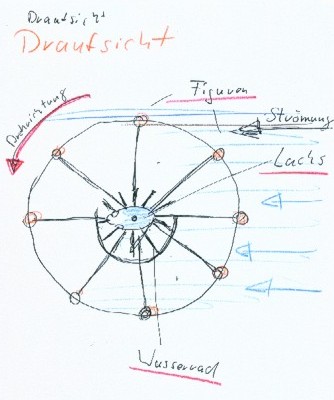 Draufsicht
Draufsicht
Figuren
Drehrichtung
Strömung
Lachs
Wasserrad